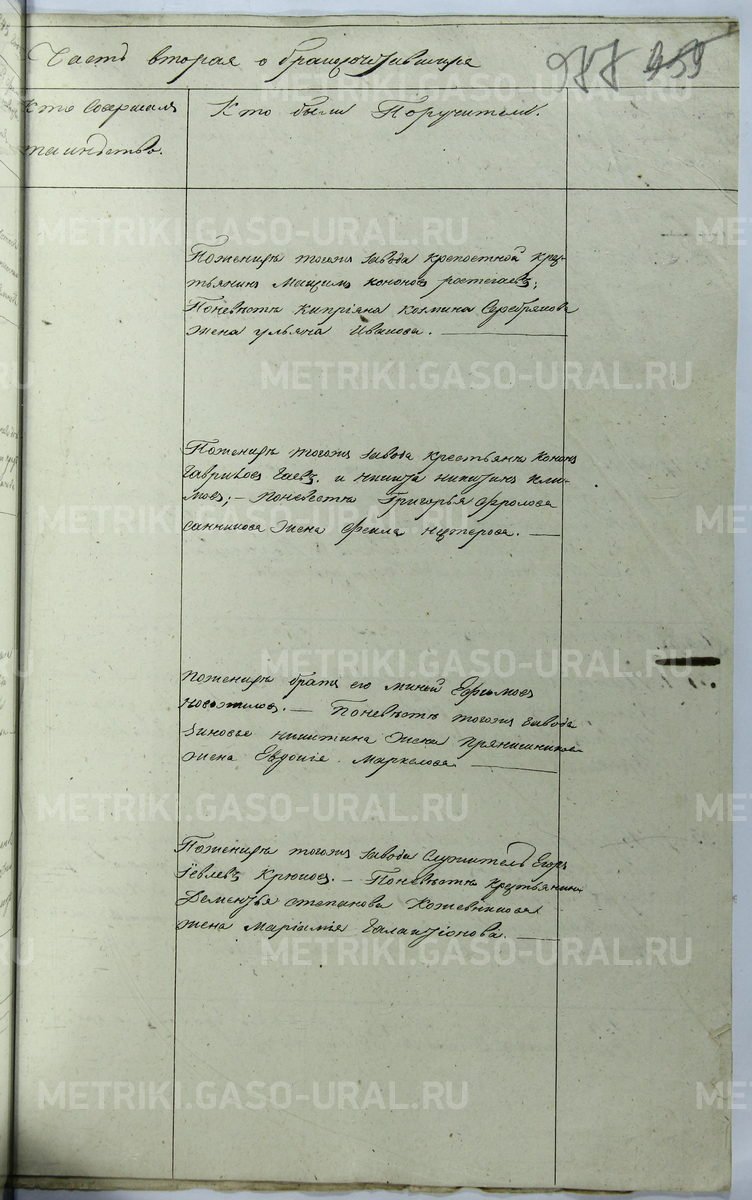 Часть вторая о бракосочетавшихся
977 455
Кто Совершалъ
таинство.
Кто были Поручители.
Поженихѣ тогожъ завода крепостной кре-
стьянинъ Максимъ кононовъ ростегаевъ;
Поневѣстѣ Киприяна козмина Серебрякова
жена ульяна Иванова.
Поженихѣ тогожъ завода крестьяне Кононъ
Гавриловъ Гаевъ. и никита никитинъ Кли-
мовъ; – поневестѣ Григорья Фролова
санникова жена Фекла нестерова.
поженихѣ братъ его миней Ефимовъ
новожиловъ. – Поневѣстѣ тогожъ завода
зиновья никитина жена прянишникова
жена Евдокіе. Маркелова.
Поженихѣ тогожъ завода Служитель Егоръ
Іевлевъ Крюковъ. – Поневѣстѣ крестьянина
Дементья степанова Кожевникова
жена Маріамія Галактіонова.
METRIKI.GASO-URAL.RU